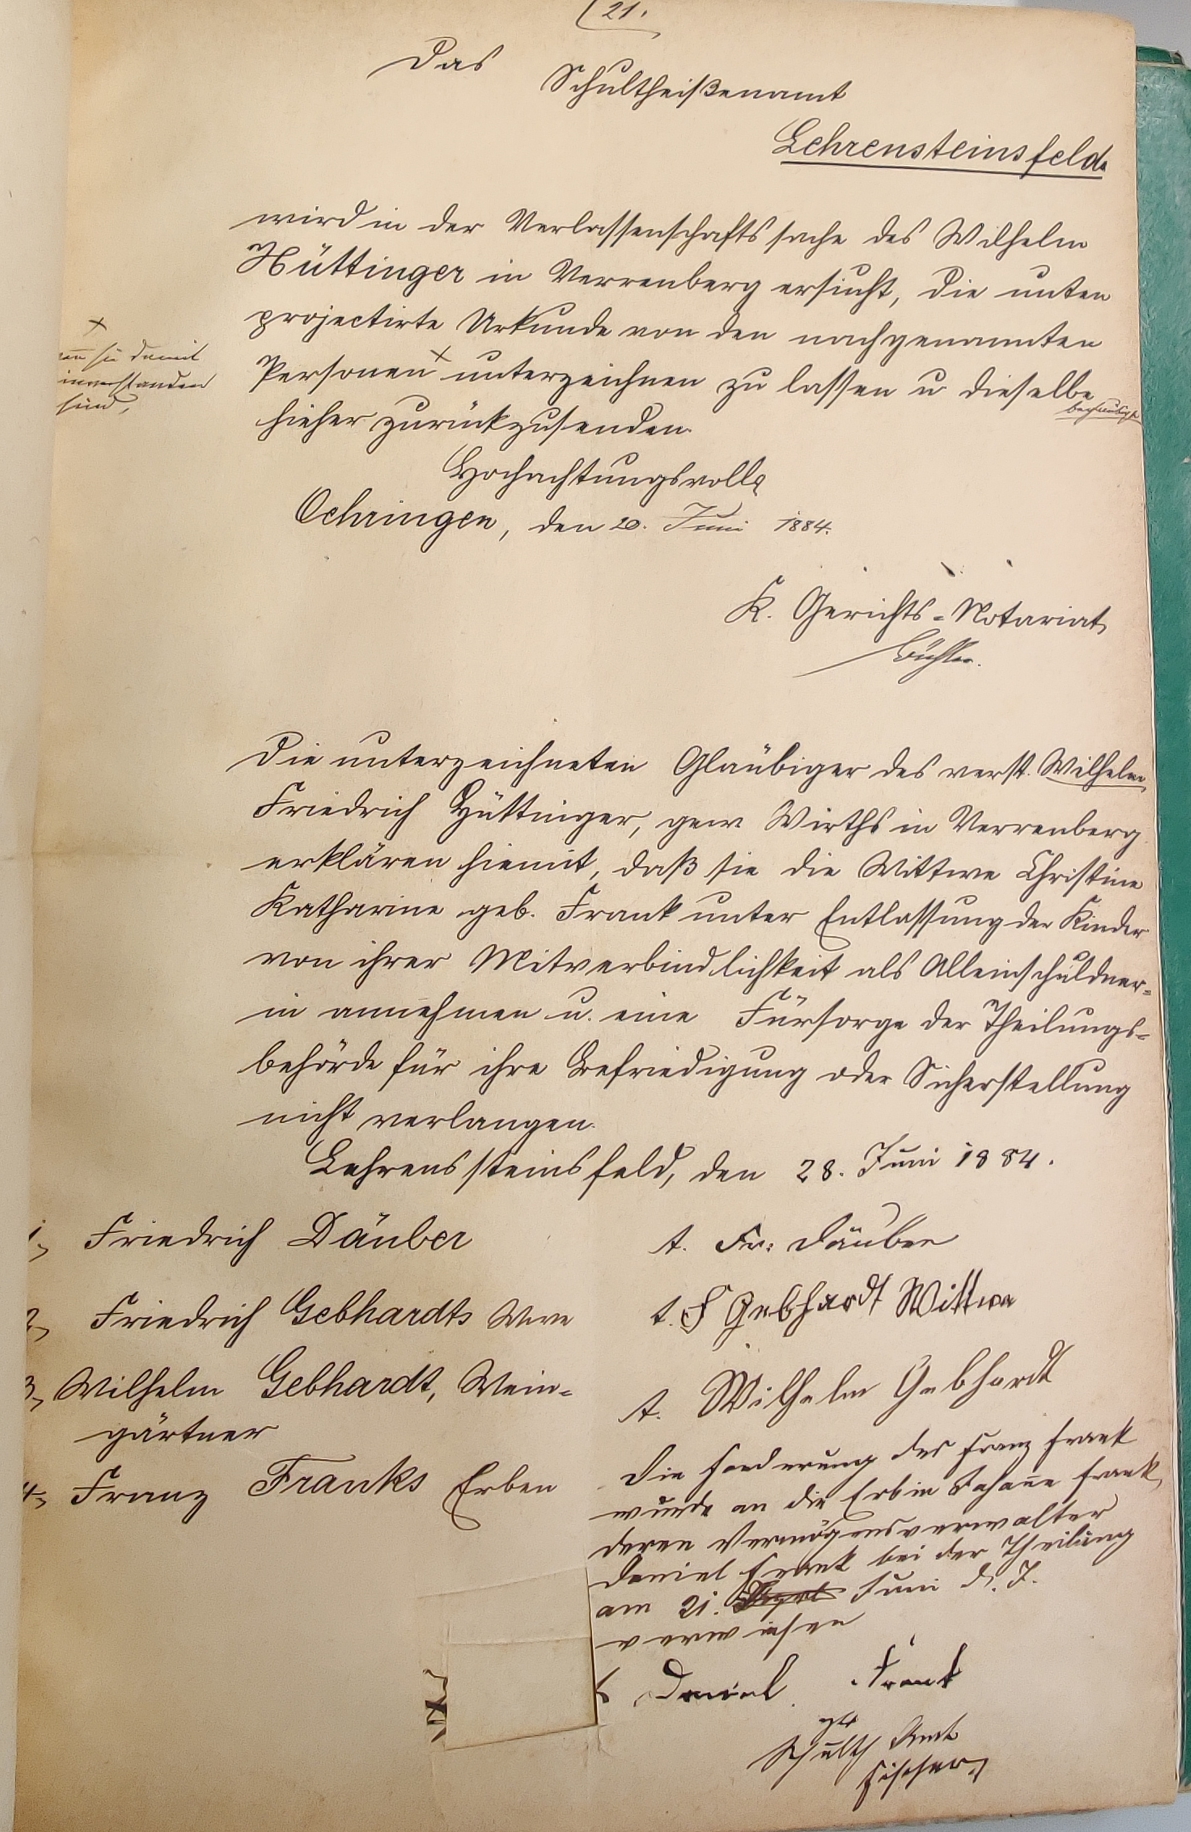 21.
Das
Schultheißenamt
Lehrensteinsfeld.
wird in der Verlassenschaftssache des Wilhelm
Hüttinger in Verrenberg ersucht, die unten
projectirte Urkunde von den nachgenannten
Personen × unterzeichnen zu lassen u dieselbe
beglaubigt
hieher zurückzusenden.
×
sie damit
einverstanden
sind,
Hochachtungsvoll
Oehringen, den 20. Juni 1884.
K. Gerichts-Notariat
Die unterzeichneten Gläubiger des verst. Wilhelm
Friedrich Hüttinger, gew Wirths in Verrenberg
erklären hiemit, daß sie die Wittwe Christine
Katharine geb. Frank unter Entlassung der Kinder
von ihrer Mitverbindlichkeit als Alleinschuldner-
in annehmen u. eine Fürsorge der Theilungs-
behörde für ihre Befriedigung oder Sicherstellung
nicht verlangen.
Lehrenssteinsfeld, den 28. Juni 1884.
1, Friedrich Däuber
t. Fr: Däuber
2, Friedrich Gebhardts Wwe
t. F Gebhardt Wittwe
3, Wilhelm Gebhardt, Wein-
gärtner
t. Wilhelm Gebhardt
4, Franz Franks Erben
Die Forderung des Franz Frank
wurde an die Erbin Johañe Frank,
deren Vermögensverwalter
Daniel Frank bei der Theilung
am 21. Juni d. J.
verwiesen
t Daniel Frank
Schulth Amt
Fischer